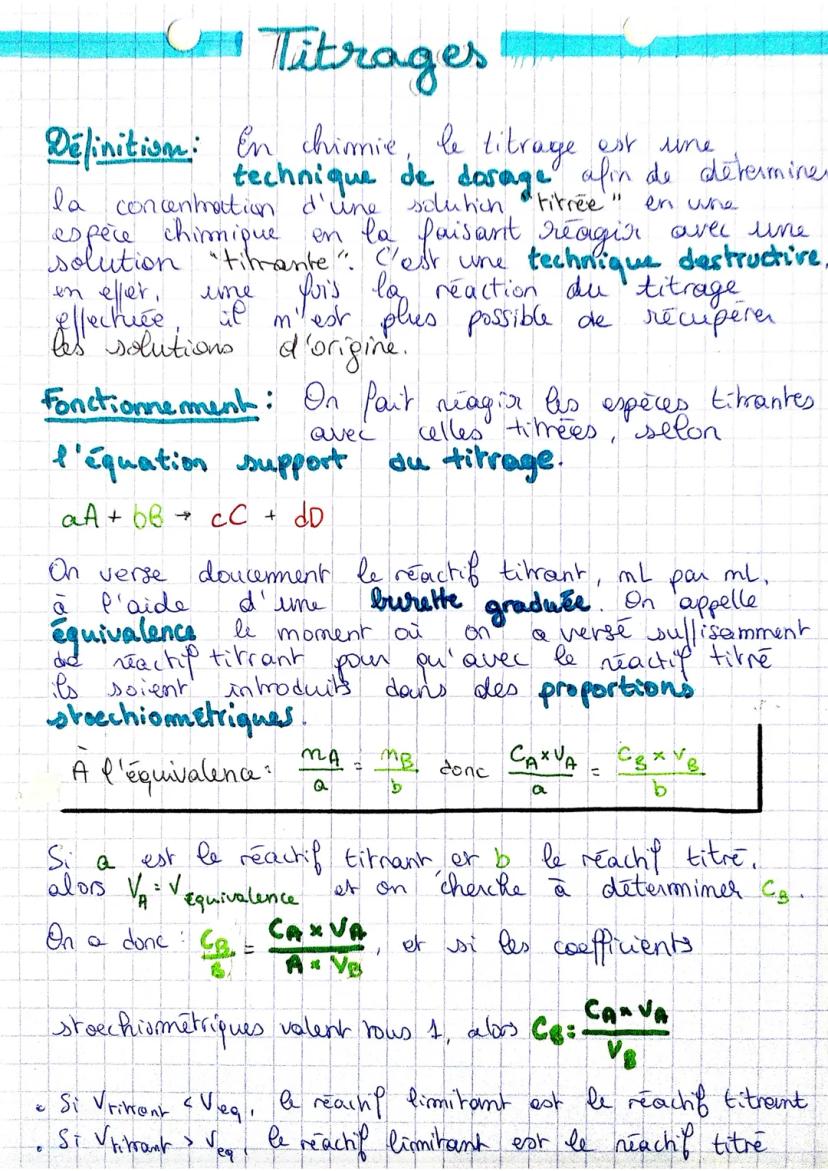 Titrages
Définition : En chimie, le titrage est une
technique de dosage afin de déterminer
la concentration d'une solution "titrée" en une
espèce chimique en la faisant réagir avec une
solution "titrante". C'est une technique destructive,
en effet, une fois la réaction du titrage
effectuée, il n'est plus possible de récupérer
les solutions d'origine.
Fonctionnement : On fait réagir les espèces titrantes
avec celles titrées, selon
l'équation support du titrage.
aA + bB → cC + dD
On verse doucement le réactif titrant, mL par mL,
à l'aide d'une burette graduée. On appelle
équivalence le moment où on a versé suffisamment
de réactif titrant pour qu'avec le réactif titré
ils soient introduits dans des proportions
stoechiométriques.
À l'équivalence : nA/a = nB/b donc CA×VA/a = CB×VB/b
Si a est le réactif titrant et b le réactif titré,
alors VA = Véquivalence et on cherche à déterminer CB.
On a donc : CB/B = CA×VA/A×VB, et si les coefficients
stoechiométriques valent tous 1, alors CB = CA×VA/VB
• Si Vtitrant < Veq, le réactif limitant est le réactif titrant
• Si Vtitrant > Veq, le réactif limitant est le réactif titré